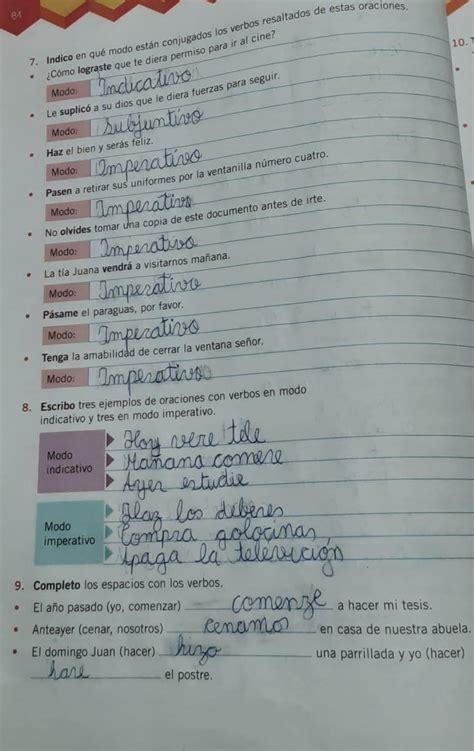 84
7. Indico en qué modo están conjugados los verbos resaltados de estas oraciones.
• ¿Cómo lograste que te diera permiso para ir al cine?
Modo: Indicativo
• Le suplicó a su dios que le diera fuerzas para seguir.
Modo: Subjuntivo
• Haz el bien y serás feliz.
Modo: Imperativo
• Pasen a retirar sus uniformes por la ventanilla número cuatro.
Modo: Imperativo
• No olvides tomar una copia de este documento antes de irte.
Modo: Imperativo
• La tía Juana vendrá a visitarnos mañana.
Modo: Imperativo
• Pásame el paraguas, por favor.
Modo: Imperativo
• Tenga la amabilidad de cerrar la ventana señor.
Modo: Imperativo
8. Escribo tres ejemplos de oraciones con verbos en modo
indicativo y tres en modo imperativo.
Modo
indicativo
Hoy vere tele
Mañana comere
Ayer estudie
Modo
imperativo
Haz los deberes
Compra golocinas
Apaga la televición
9. Completo los espacios con los verbos.
• El año pasado (yo, comenzar) comenze a hacer mi tesis.
• Anteayer (cenar, nosotros) cenamos en casa de nuestra abuela.
• El domingo Juan (hacer) hizo una parrillada y yo (hacer)
hare el postre.
10.